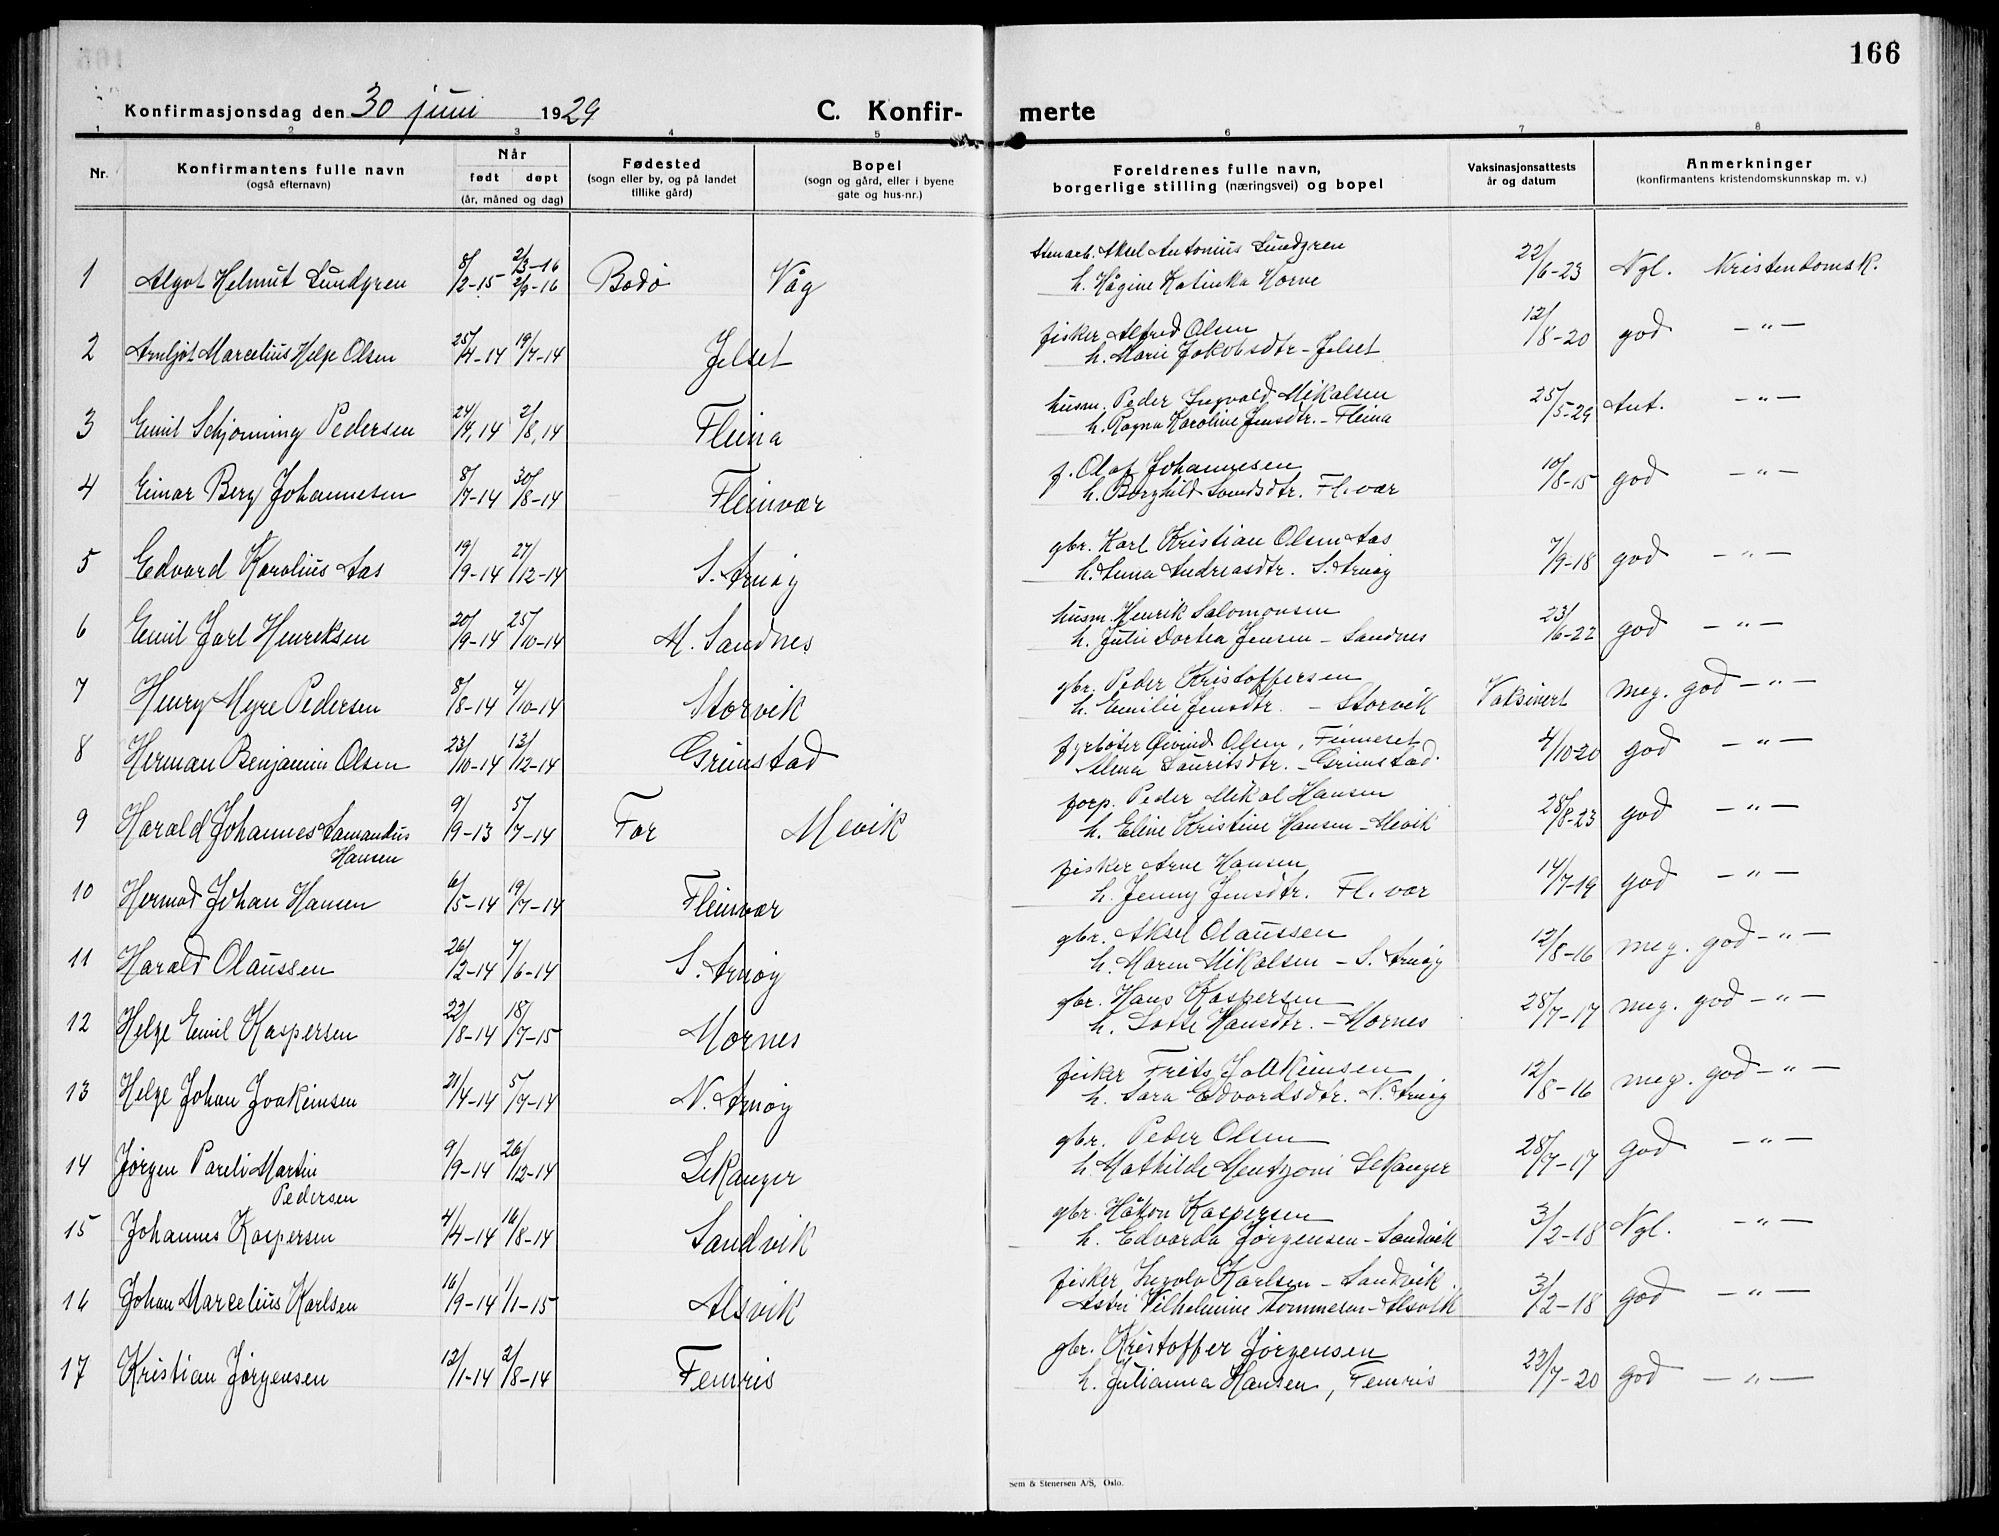 166
Konfirmasjonsdag den 30 juni 1929
C. Konfir-
merte
1 2 3 4 5 6 7 8
Nr.
Konfirmantens fulle navn
(også efternavn)
Når
født døpt
(år, måned og dag)
Fødested
(sogn eller by, og på landet
tillike gård)
Bopel
(sogn og gård, eller i byene
gate og hus-nr.)
Foreldrenes fulle navn,
borgerlige stilling (næringsvei) og bopel
Vaksinasjonsattests
år og datum
Anmerkninger
(konfirmantens kristendomskunnskap m. v.)
1 Algot Helmut Lundgren 8/2-15 2/3-16 2/9-16 Bodø Våg Stenarb. Aksel Antonius Lundgren 22/6-23 Ngl. Kristendomsk.
h. Hågine Katinka Horne
2 Arnljot Marcelius Helge Olsen 25/4-14 19/7-14 Jelset fisker Alfred Olsen 12/8-20 god — " —
h. Marie Jakobsdtr - Jelset
3 Emil Schjønning Pedersen 24/4,14 2/8,14 Fleina husm. Peder Ingvald Mikalsen 25/5-29 Ant. — " —
h. Ragna Karoline Jensdtr. - Fleina
4 Einar Berg Johannesen 8/7-14 30/8-14 Fleinvær f. Olaf Johannesen 10/8-15 god — " —
h. Borghild Fl.vær
5 Edvard Karolius Aas 19/9-14 27/12-14 S. Arnøy gbr. Karl Kristian Olsen Aas 7/9-18 god — " —
h. Anna Andreasdtr. S. Arnøy
6 Emil Jarl Henriksen 20/9-14 25/10-14 M. Sandnes husm. Henrik Salomonsen 23/6-22 god — " —
h. Julie Dortea Jensen - Sandnes
7 Henry Myre Pedersen 8/8-14 4/10-14 Storvik gbr. Peder Kristoffersen Vaksinert meg. god — " —
h. Emilie Jensdtr. - Storvik
8 Herman Benjamin Olsen 23/10-14 13/12-14 Grimstad fyrbøter Øivind Olsen, Finneset 4/10-20 god — " —
Alma Lauritsdtr. - Grimstad.
9 Harald Johannes Amandus 9/9-13 5/7-14 Før Mevik forp. Peder Mikal Hansen 28/8-23 god — " —
Hansen h. Eline Kristine Hansen - Mevik
10 Hermod Johan Hansen 6/5-14 19/7-14 Fleinvær fisker Arne Hansen 14/7-19 god — " —
h. Jenny Jensdtr. Fl. vær
11 Harald Olaussen 26/2-14 7/6-14 S. Arnøy gbr. Aksel Olaussen 12/8-16 meg. god — " —
h. Maren Mikalsen - S. Arnøy
12 Helge Emil Kaspersen 22/8-14 18/7-15 Mornes gbr. Hans Kaspersen 28/7-17 meg. god — " —
h. Lotte Hansdtr. - Mornes
13 Helge Johan Joakimsen 21/4-14 5/7-14 N. Arnøy fisker Frits Joakimsen 12/8-16 meg. god — " —
h. Sara Edvardsdtr. N. Arnøy
14 Jørgen Pareli Martin 9/9-14 26/12-14 Sekanger gbr. Peder Olsen 28/7-17 god — " —
Pedersen h. Mathilde Mentzoni Sekanger
15 Johannes Kaspersen 4/4-14 16/8-14 Sandvik gbr. Håkon Kaspersen 3/2-18 Ngl. — " —
h. Edvarda Jørgensen - Sandvik
16 Johan Marcelius Karlsen 16/9-14 1/1-15 Alsvik fisker Ingolv Karlsen - Sandvik. 3/2-18 god — " —
Astri Vilhelmine Tommesen - Alsvik
17 Kristian Jørgensen 12/1-14 2/8-14 Femris gbr. Kristoffer Jørgensen 22/7-20 god — " —
h. Julianna Hansen, Femris
Sem & Stenersen A/S, Oslo.